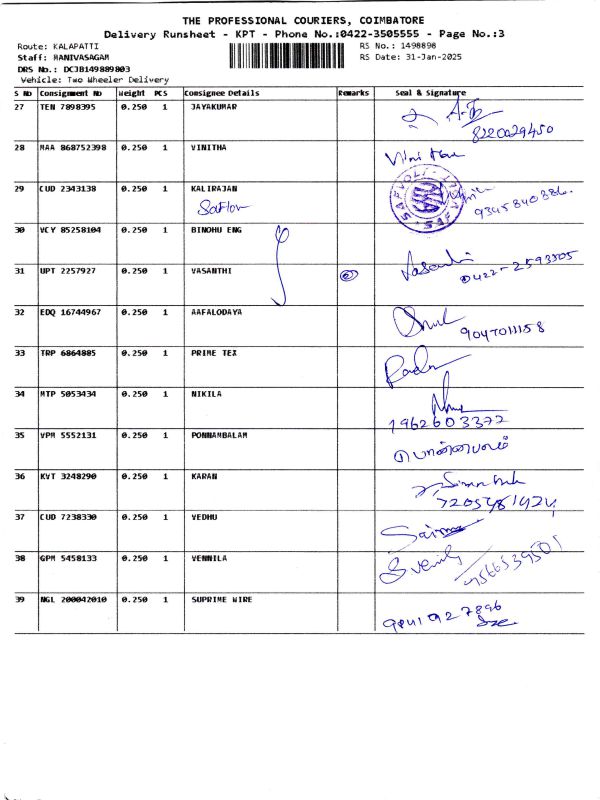 THE PROFESSIONAL COURIERS, COIMBATORE
Delivery Runsheet - KPT - Phone No.:0422-3505555 - Page No.:3
Route: KALAPATTI RS No.: 1498898
Staff: MANIVASAGAM RS Date: 31-Jan-2025
DRS No.: DCJB149889803
Vehicle: Two Wheeler Delivery
S No Consignment No Weight PCS Consignee Details Remarks Seal & Signature
27 TEN 7898395 0.250 1 JAYAKUMAR
8220029450
28 MAA 868752398 0.250 1 VINITHA
29 CUD 2343138 0.250 1 KALIRAJAN
Saflov 9345840386
30 VCY 85258104 0.250 1 BINOHU ENG
31 UPT 2257927 0.250 1 VASANTHI Vasanthi
0422-2593505
32 EDQ 16744967 0.250 1 AAFALODAYA
9047011158
33 TRP 6864885 0.250 1 PRIME TEX
34 MTP 5053434 0.250 1 NIKILA
1962603372
35 VPM 5552131 0.250 1 PONNAMBALAM
பொன்னம்பலம்
36 KVT 3248290 0.250 1 KARAN
37 CUD 7238330 0.250 1 VEDHU
38 GPM 5458133 0.250 1 VENNILA
9566539501
39 NGL 200042010 0.250 1 SUPRIME WIRE
9841927896